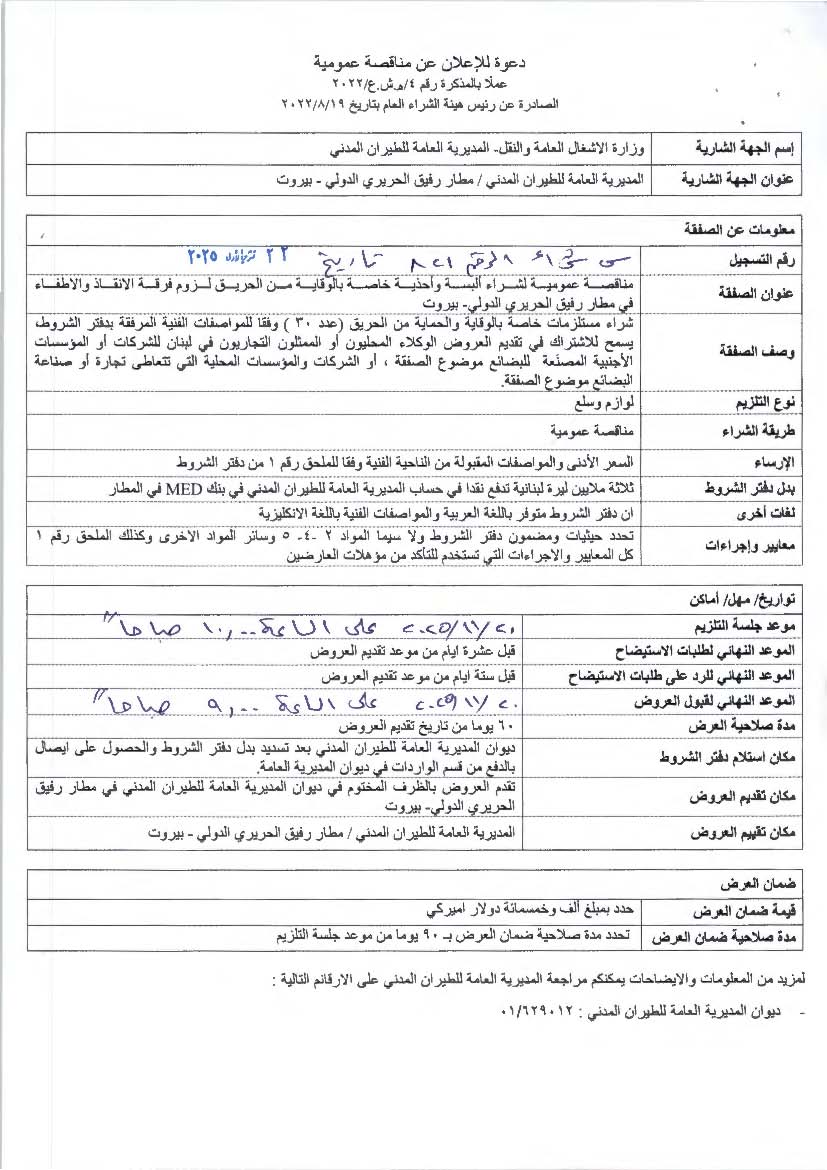 دعوة للإعلان عن مناقصة عمومية
عملًا بالمذكرة رقم ٤/هـ.ش.ع/٢٠٢٢
الصادرة عن رئيس هيئة الشراء العام بتاريخ ٢٠٢٢/٨/١٩
إسم الجهة الشارية وزارة الاشغال العامة والنقل- المديرية العامة للطيران المدني
عنوان الجهة الشارية المديرية العامة للطيران المدني / مطار رفيق الحريري الدولي - بيروت
معلومات عن الصفقة
رقم التسجيل الرقم ٨٢١ تاريخ ٢٢ تشرين اول ٢٠٢٥
عنوان الصفقة مناقصة عمومية لشراء ألبسة وأحذية خاصة بالوقاية من الحريق لزوم فرقة الانقاذ والاطفاء
في مطار رفيق الحريري الدولي- بيروت
وصف الصفقة شراء مستلزمات خاصة بالوقاية والحماية من الحريق (عدد ٣٠ ) وفقا للمواصفات الفنية المرفقة بدفتر الشروط،
يسمح للاشتراك في تقديم العروض الوكلاء المحليون أو الممثلون التجاريون في لبنان للشركات أو المؤسسات
الأجنبية المصنّعة للبضائع موضوع الصفقة ، أو الشركات والمؤسسات المحلية التي تتعاطى تجارة أو صناعة
البضائع موضوع الصفقة.
نوع التلزيم لوازم وسلع
طريقة الشراء مناقصة عمومية
الإرساء السعر الأدنى والمواصفات المقبولة من الناحية الفنية وفقا للملحق رقم ١ من دفتر الشروط
بدل دفتر الشروط ثلاثة ملايين ليرة لبنانية تدفع نقدا في حساب المديرية العامة للطيران المدني في بنك MED في المطار
لغات أخرى ان دفتر الشروط متوفر باللغة العربية والمواصفات الفنية باللغة الانكليزية
معايير وإجراءات تحدد حيثيات ومضمون دفتر الشروط ولا سيما المواد ٢ -٤- ٥ وسائر المواد الاخرى وكذلك الملحق رقم ١
كل المعايير والاجراءات التي تستخدم للتأكد من مؤهلات العارضين
تواريخ/ مهل/ أماكن
موعد جلسة التلزيم ٢٠٢٥/١١/٢٠ على الساعة ١٠,٠٠ صباحاً
الموعد النهائي لطلبات الاستيضاح قبل عشرة ايام من موعد تقديم العروض
الموعد النهائي للرد على طلبات الاستيضاح قبل ستة ايام من موعد تقديم العروض
الموعد النهائي لقبول العروض ٢٠٢٥/١١/٢٠ على الساعة ٩,٠٠ صباحاً
مدة صلاحية العرض ٦٠ يوما من تاريخ تقديم العروض
مكان استلام دفتر الشروط ديوان المديرية العامة للطيران المدني بعد تسديد بدل دفتر الشروط والحصول على ايصال
بالدفع من قسم الواردات في ديوان المديرية العامة.
مكان تقديم العروض تقدم العروض بالظرف المختوم في ديوان المديرية العامة للطيران المدني في مطار رفيق
الحريري الدولي- بيروت
مكان تقييم العروض المديرية العامة للطيران المدني / مطار رفيق الحريري الدولي - بيروت
ضمان العرض
قيمة ضمان العرض حدد بمبلغ ألف وخمسمائة دولار اميركي
مدة صلاحية ضمان العرض تحدد مدة صلاحية ضمان العرض بـ ٩٠ يوما من موعد جلسة التلزيم
لمزيد من المعلومات والايضاحات يمكنكم مراجعة المديرية العامة للطيران المدني على الارقام التالية :
- ديوان المديرية العامة للطيران المدني : ٠١/٦٢٩٠١٢